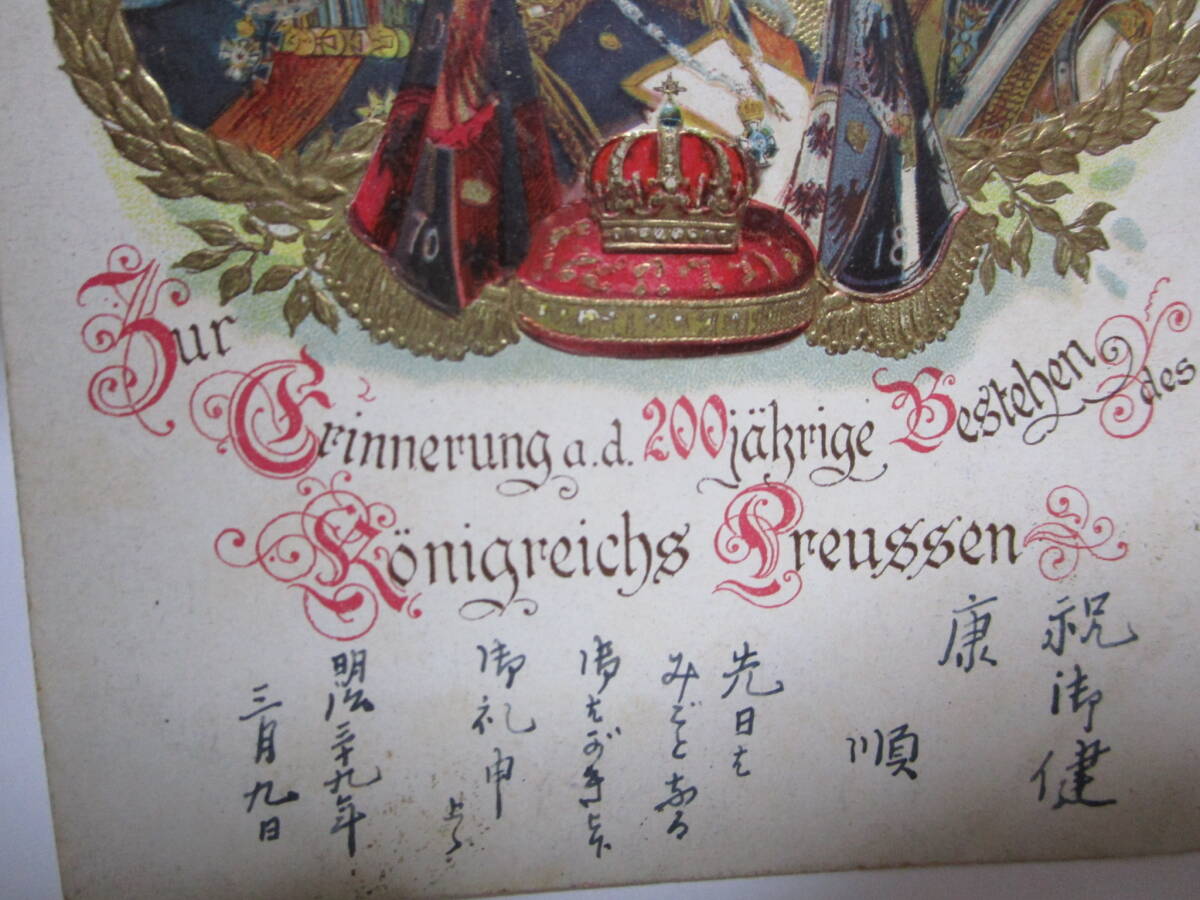 10
18
Zur
Erinnerung a.d. 200jährige Bestehen des
Königreichs Preussen
祝御健
康
順
先日は
みごとなる
御はがき
御礼申
上候
明治三十九年
三月九日